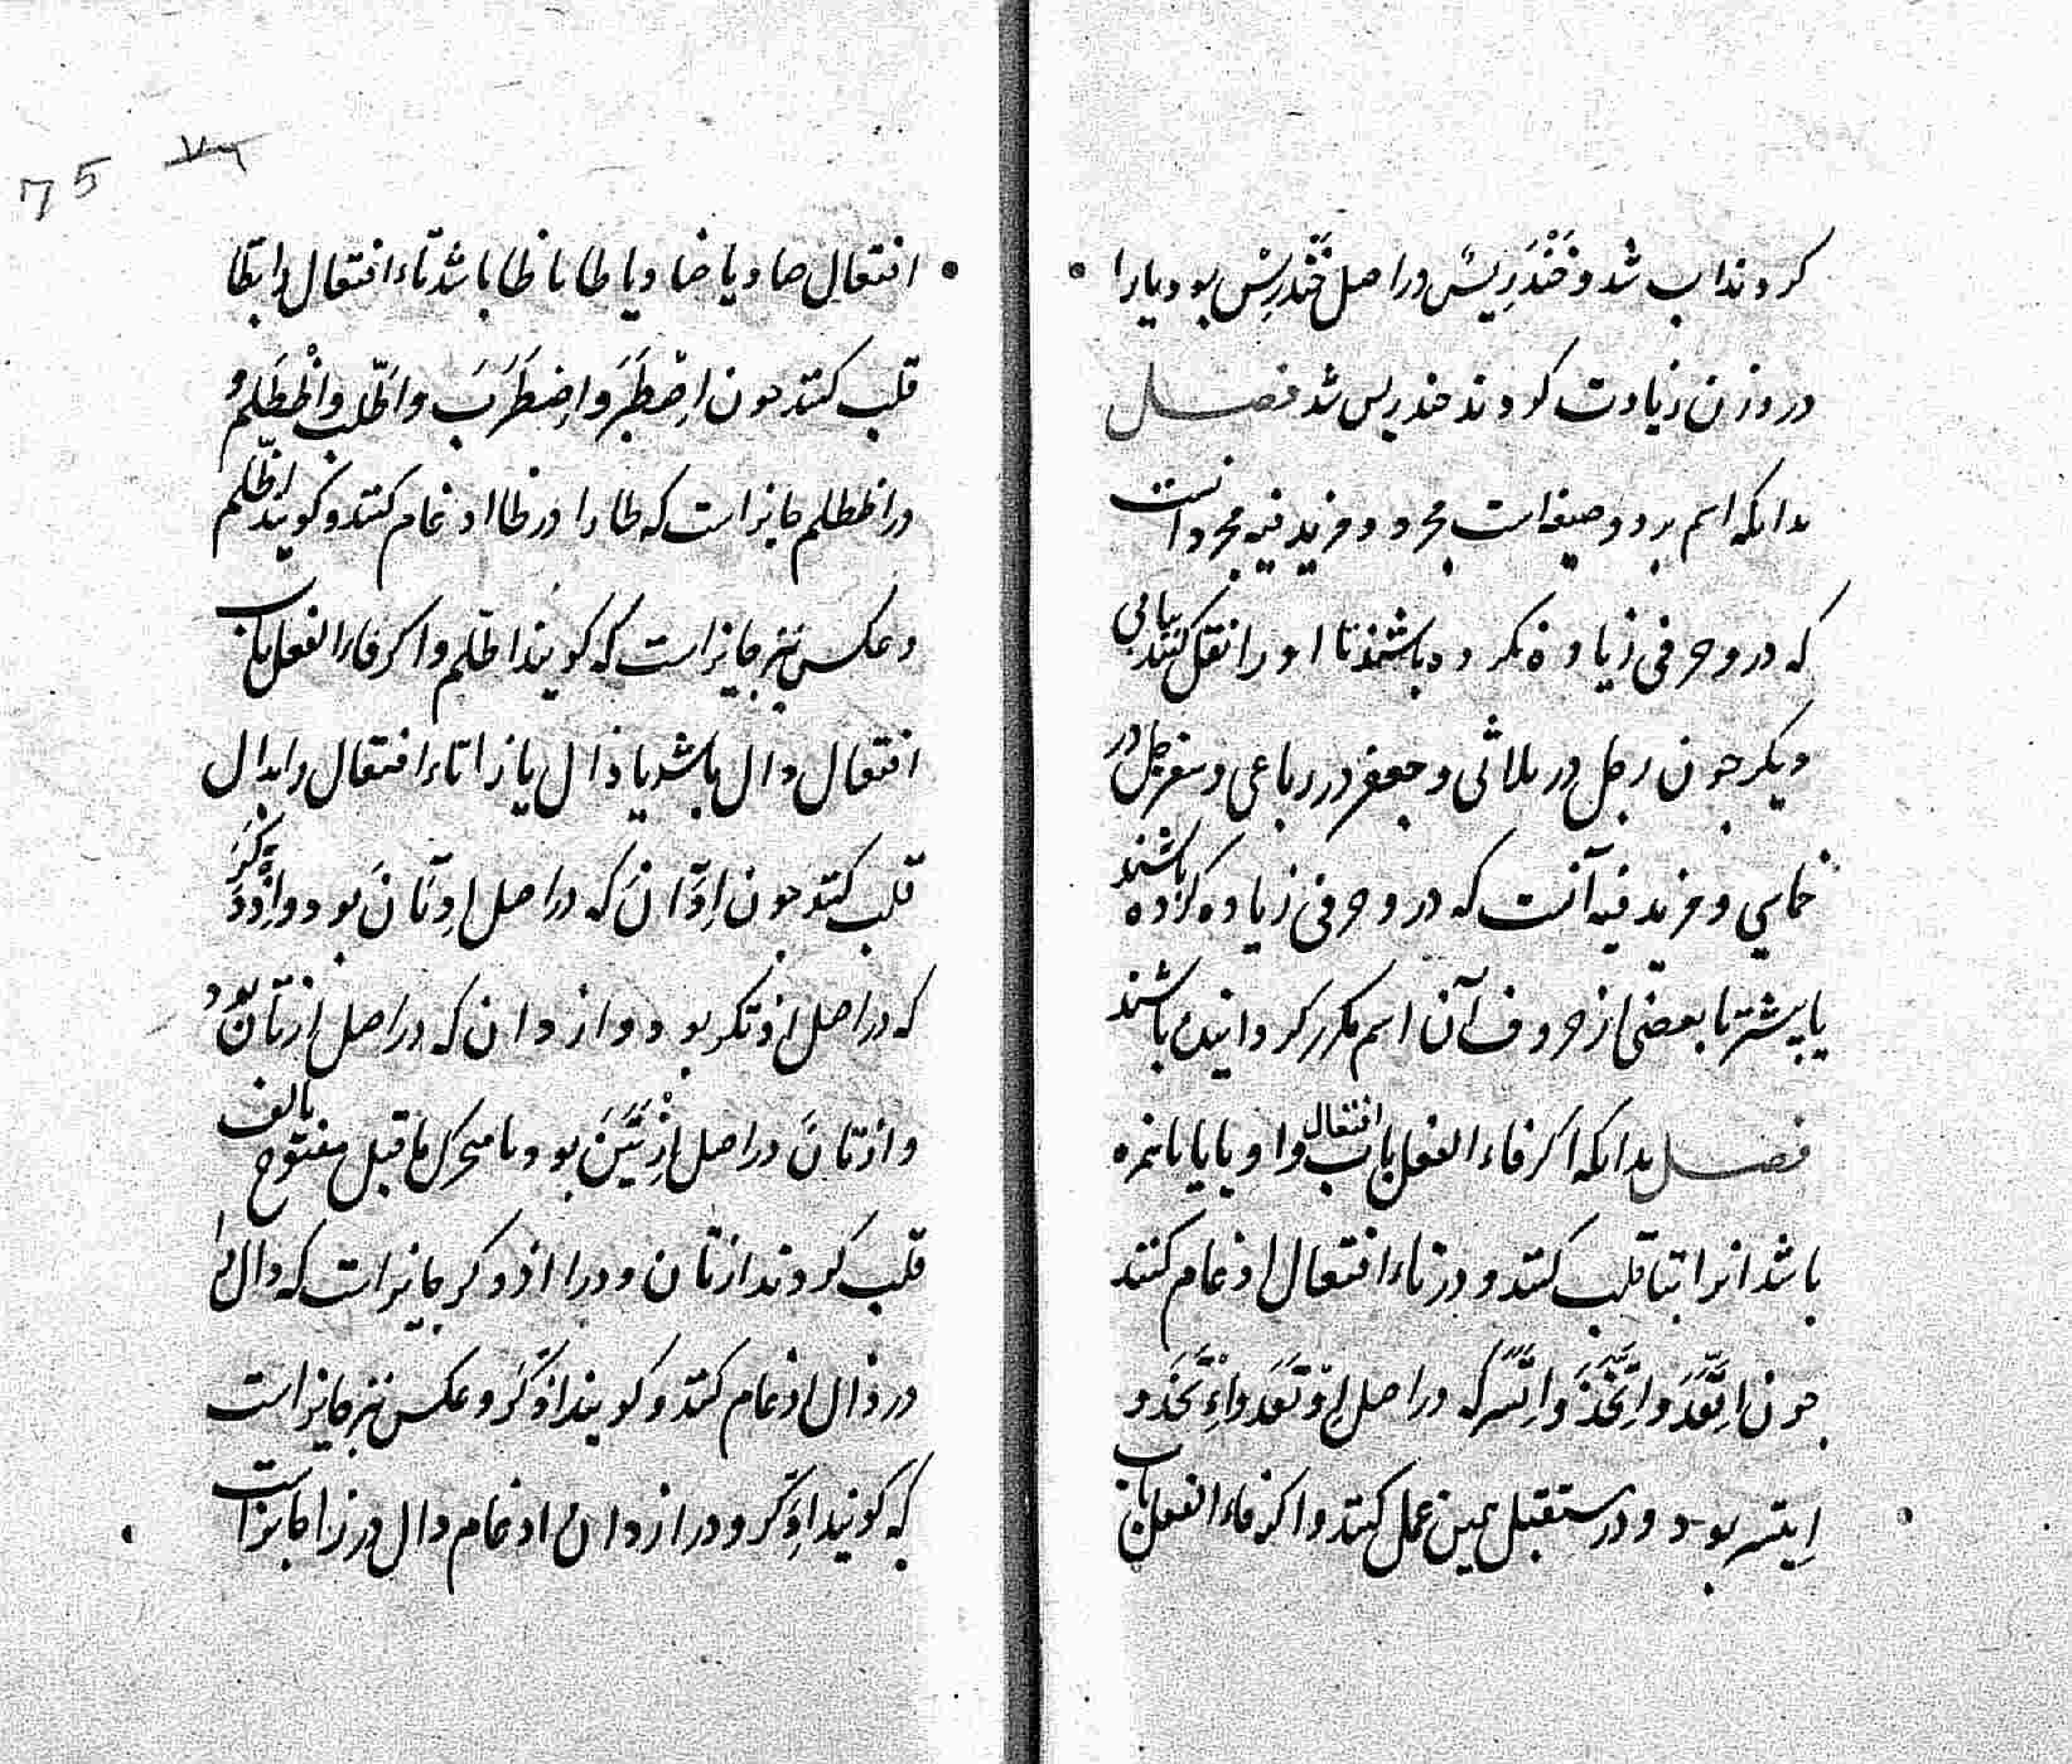 کردند اب شد و خَنْدَرِیسٌ در اصل خَنْدَرِسْ بود یا را
در وزن زیادت کردند خندریس شد فصل
بدانکه اسم بر دو صیغه است مجرد و مزید فیه مجرد انست
که در و حرفی زیاده نکرده باشند تا او را نقل کنند ببابی
دیگر چون رجل در ثلاثی و جعفر در رباعی و سفرجل در
خماسی و مزید فیه آنست که در و حرفی زیاده کرده باشند
یا پیشتر یا بعضی از حروف آن اسم مکرر کردانیده باشند
فصل بدانکه اکر فاء الفعل باب افتعال واو یا یا یا همزه
باشد انرا بتا قلب کنند و در تاء افتعال ادغام کنند
چون اِتَّعَدَ وَاتَّخَذَ وَاتَّسَرَ که در اصل اِوْتَعَدَ وَاءْتَخَذَ و
اِیتسر بود و در مستقبل همین عمل کنند و اکر فاء الفعل باب
75
افتعالِ صاد یا ضاد یا طا یا ظا باشد تاء افتعال را بطا
قلب کنند چون اِصْطَبَرَ وَاِضطَرَبَ وَاطَّلب وَاظْطَلَمَ و
در اظطلم جایز است که طا را در ظا ادغام کنند و کویند اظّلم
و عکس نیز جایز است که کویند اطّلم و اکر فاء الفعل باب
افتعال دال باشد یا ذال یا زا تاء افتعال را بدال
قلب کنند چون اِدَّانَ که در اصل اِدتَانَ بود و اِذْدَکَرَ
که در اصل اذتکر بود و ازدان که در اصل ازتان بود
و ازتانَ در اصل اِزْتَیَنَ بود یا متحرک ما قبل مفتوح بالف
قلب کردند ازتان و در اذدکر جایز است که دال را
در ذال ادغام کنند و کویند اذَّکَرَ و عکس نیز جایز است
که کویند اِدَّکر و در ازدان ادغام دال در زا جایز است